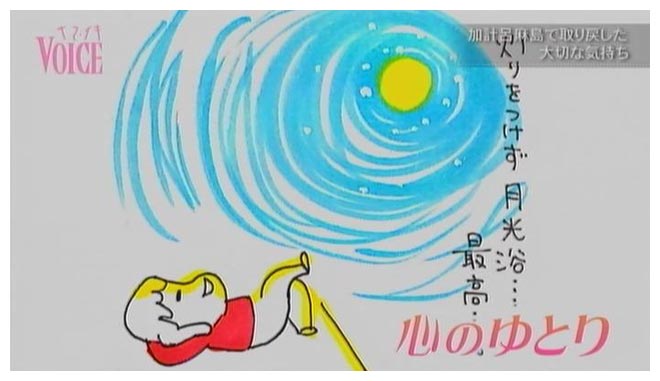 ヒマ・ツキ
VOICE
加計呂麻島で取り戻した
大切な気持ち
灯りをつけず 月光浴…
最高…。
心のゆとり